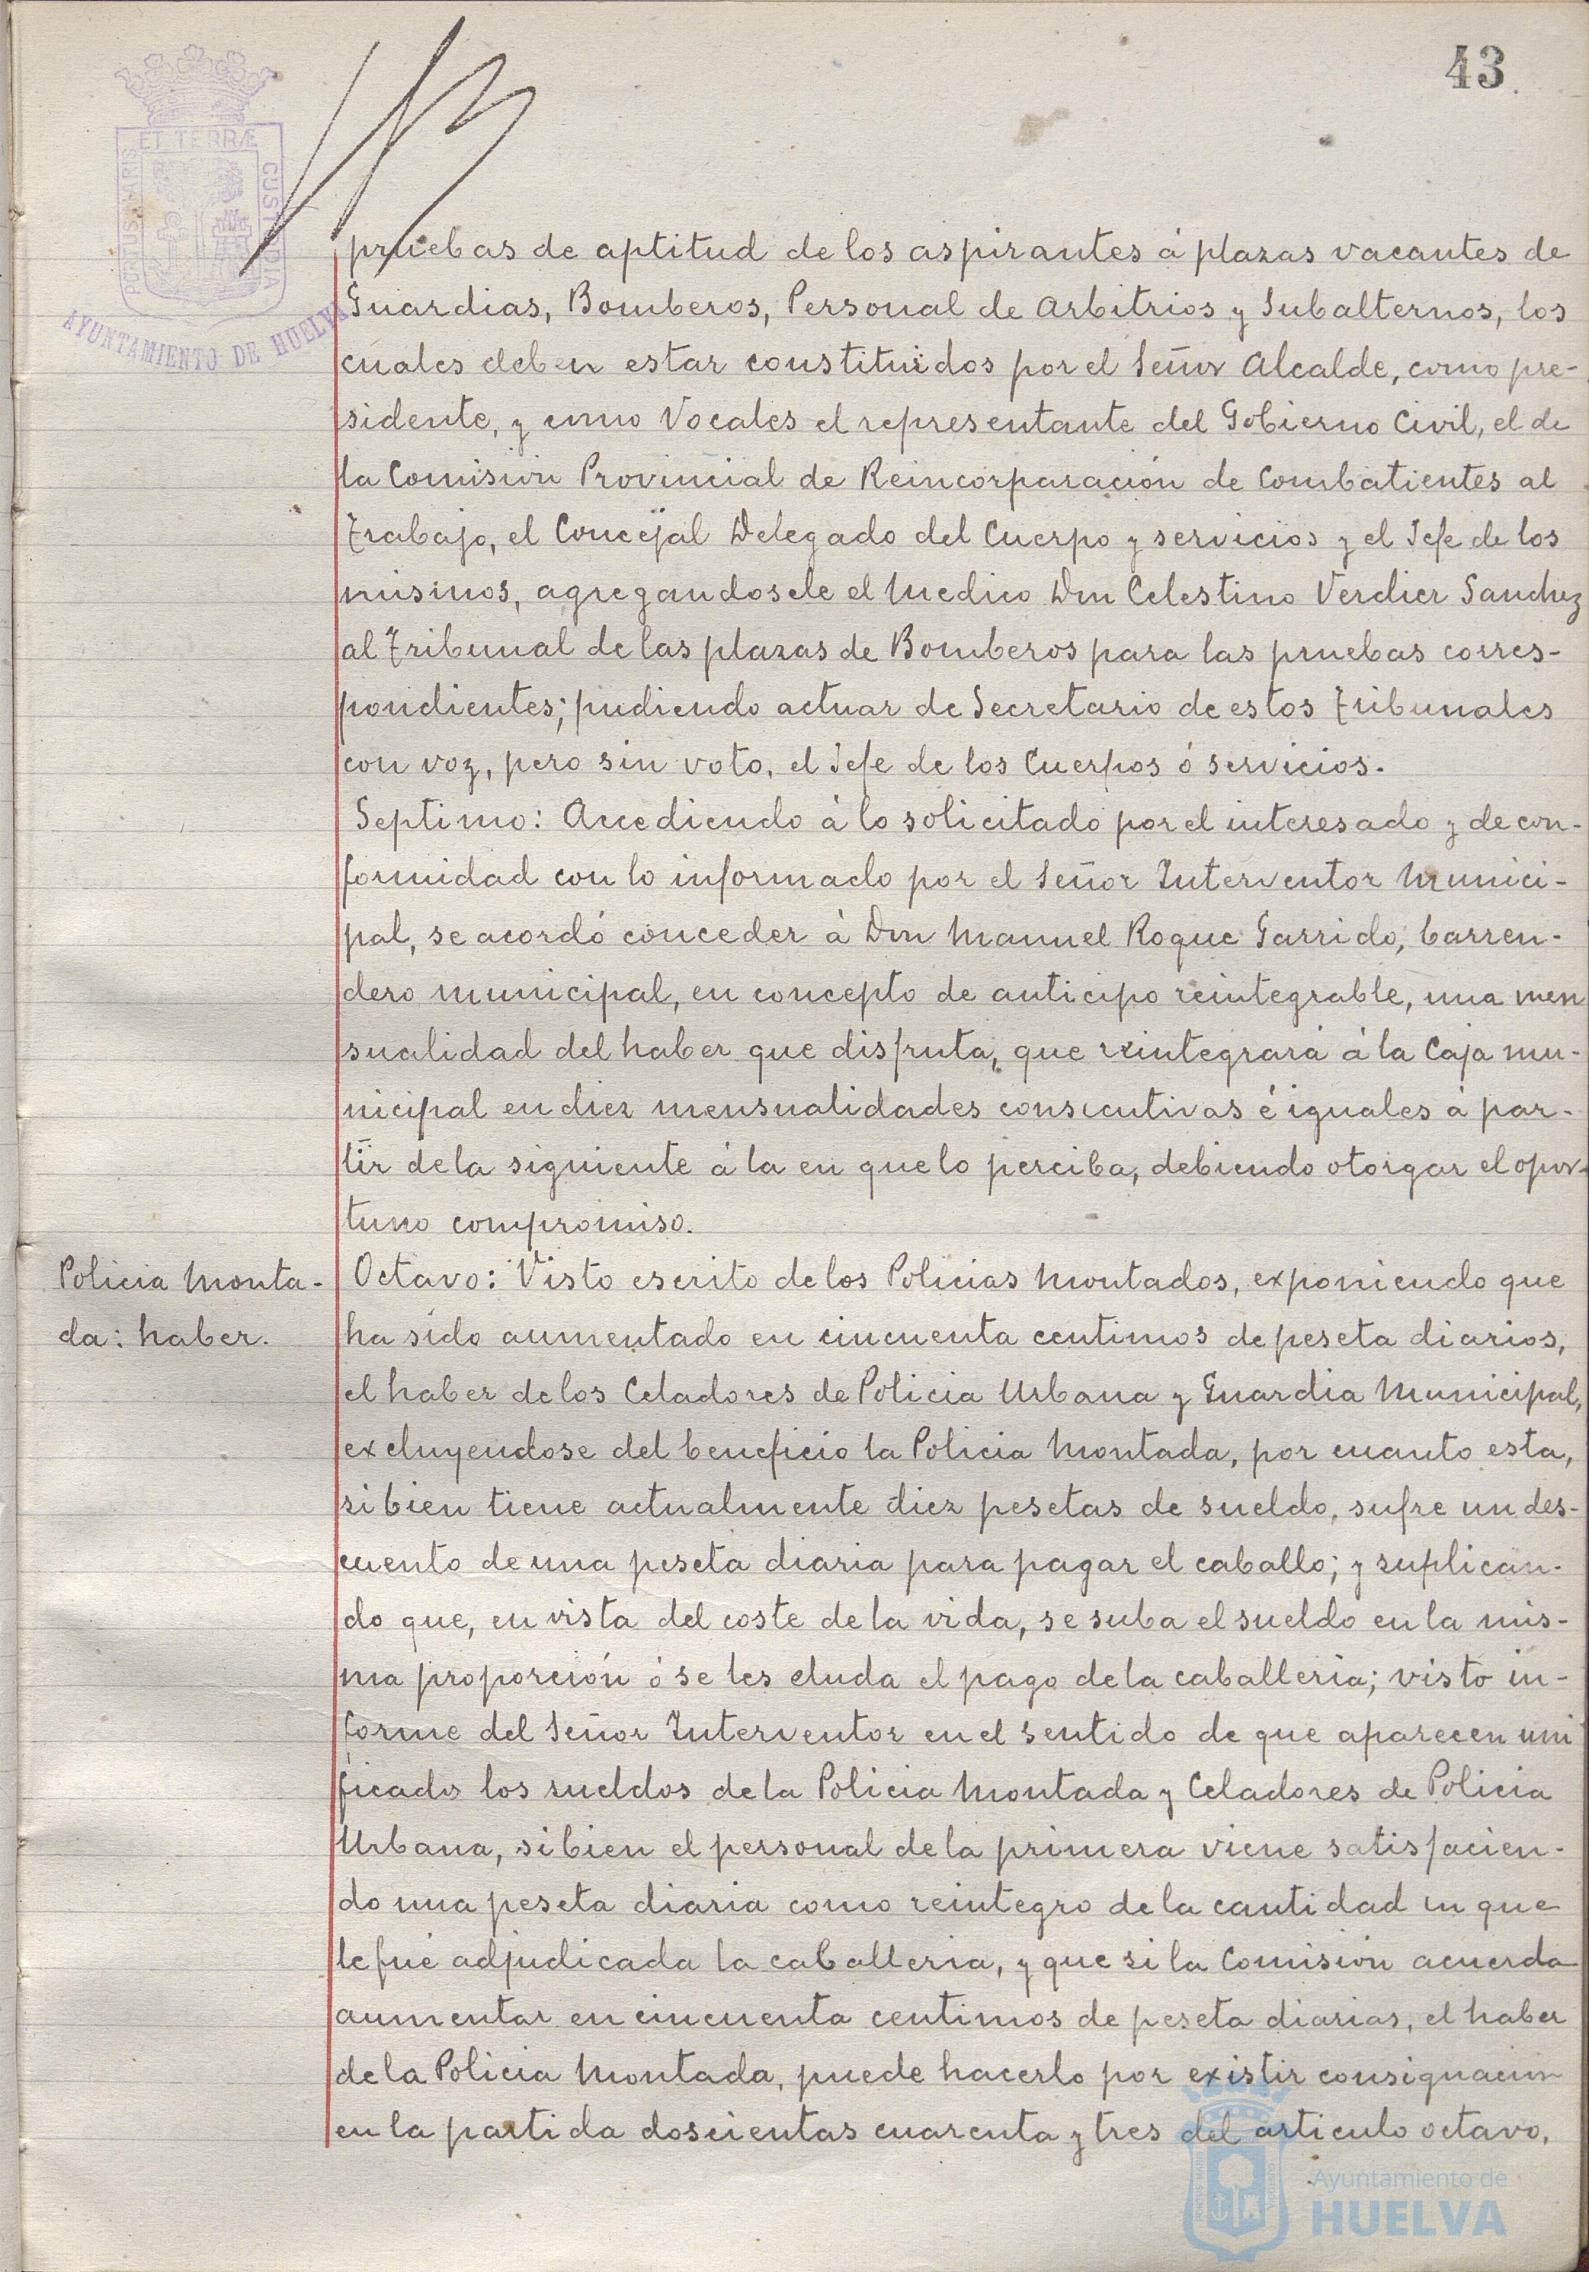 43
PORTUS MARIS
ET TERRÆ
CUSTODIA
AYUNTAMIENTO DE HUELVA
pruebas de aptitud de los aspirantes á plazas vacantes de
Guardias, Bomberos, Personal de Arbitrios y Subalternos, los
cuales deben estar constituidos por el Señor Alcalde, como pre-
sidente, y como Vocales el representante del Gobierno Civil, el de
la Comisión Provincial de Reincorporación de Combatientes al
Trabajo, el Concejal Delegado del Cuerpo y servicios y el Jefe de los
mismos, agregandosele el Medico Don Celestino Verdier Sanchez
al Tribunal de las plazas de Bomberos para las pruebas corres-
pondientes; pudiendo actuar de Secretario de estos Tribunales
con voz, pero sin voto, el Jefe de los Cuerpos ó servicios.
Septimo: Accediendo á lo solicitado por el interesado y de con-
formidad con lo informado por el Señor Interventor Munici-
pal, se acordó conceder á Don Manuel Roque Garrido, barren-
dero municipal, en concepto de anticipo reintegrable, una men
sualidad del haber que disfruta, que reintegrará á la Caja mu-
nicipal en diez mensualidades consecutivas é iguales á par-
tir de la siguiente á la en que lo perciba, debiendo otorgar el opor-
tuno compromiso.
Policia Monta-
da: haber.
Octavo: Visto escrito de los Policias Montados, exponiendo que
ha sido aumentado en cincuenta centimos de peseta diarios,
el haber de los Celadores de Policia Urbana y Guardia Municipal,
excluyendose del beneficio la Policia Montada, por cuanto esta,
si bien tiene actualmente diez pesetas de sueldo, sufre un des-
cuento de una peseta diaria para pagar el caballo; y suplican-
do que, en vista del coste de la vida, se suba el sueldo en la mis-
ma proporción ó se les eluda el pago de la caballeria; visto in-
forme del Señor Interventor en el sentido de que aparecen uni
ficados los sueldos de la Policia Montada y Celadores de Policia
Urbana, si bien el personal de la primera viene satisfacien-
do una peseta diaria como reintegro de la cantidad en que
le fué adjudicada la caballeria, y que si la Comisión acuerda
aumentar en cincuenta centimos de peseta diarias, el haber
de la Policia Montada, puede hacerlo por existir consignación
en la partida doscientas cuarenta y tres del articulo octavo,
Ayuntamiento de
HUELVA